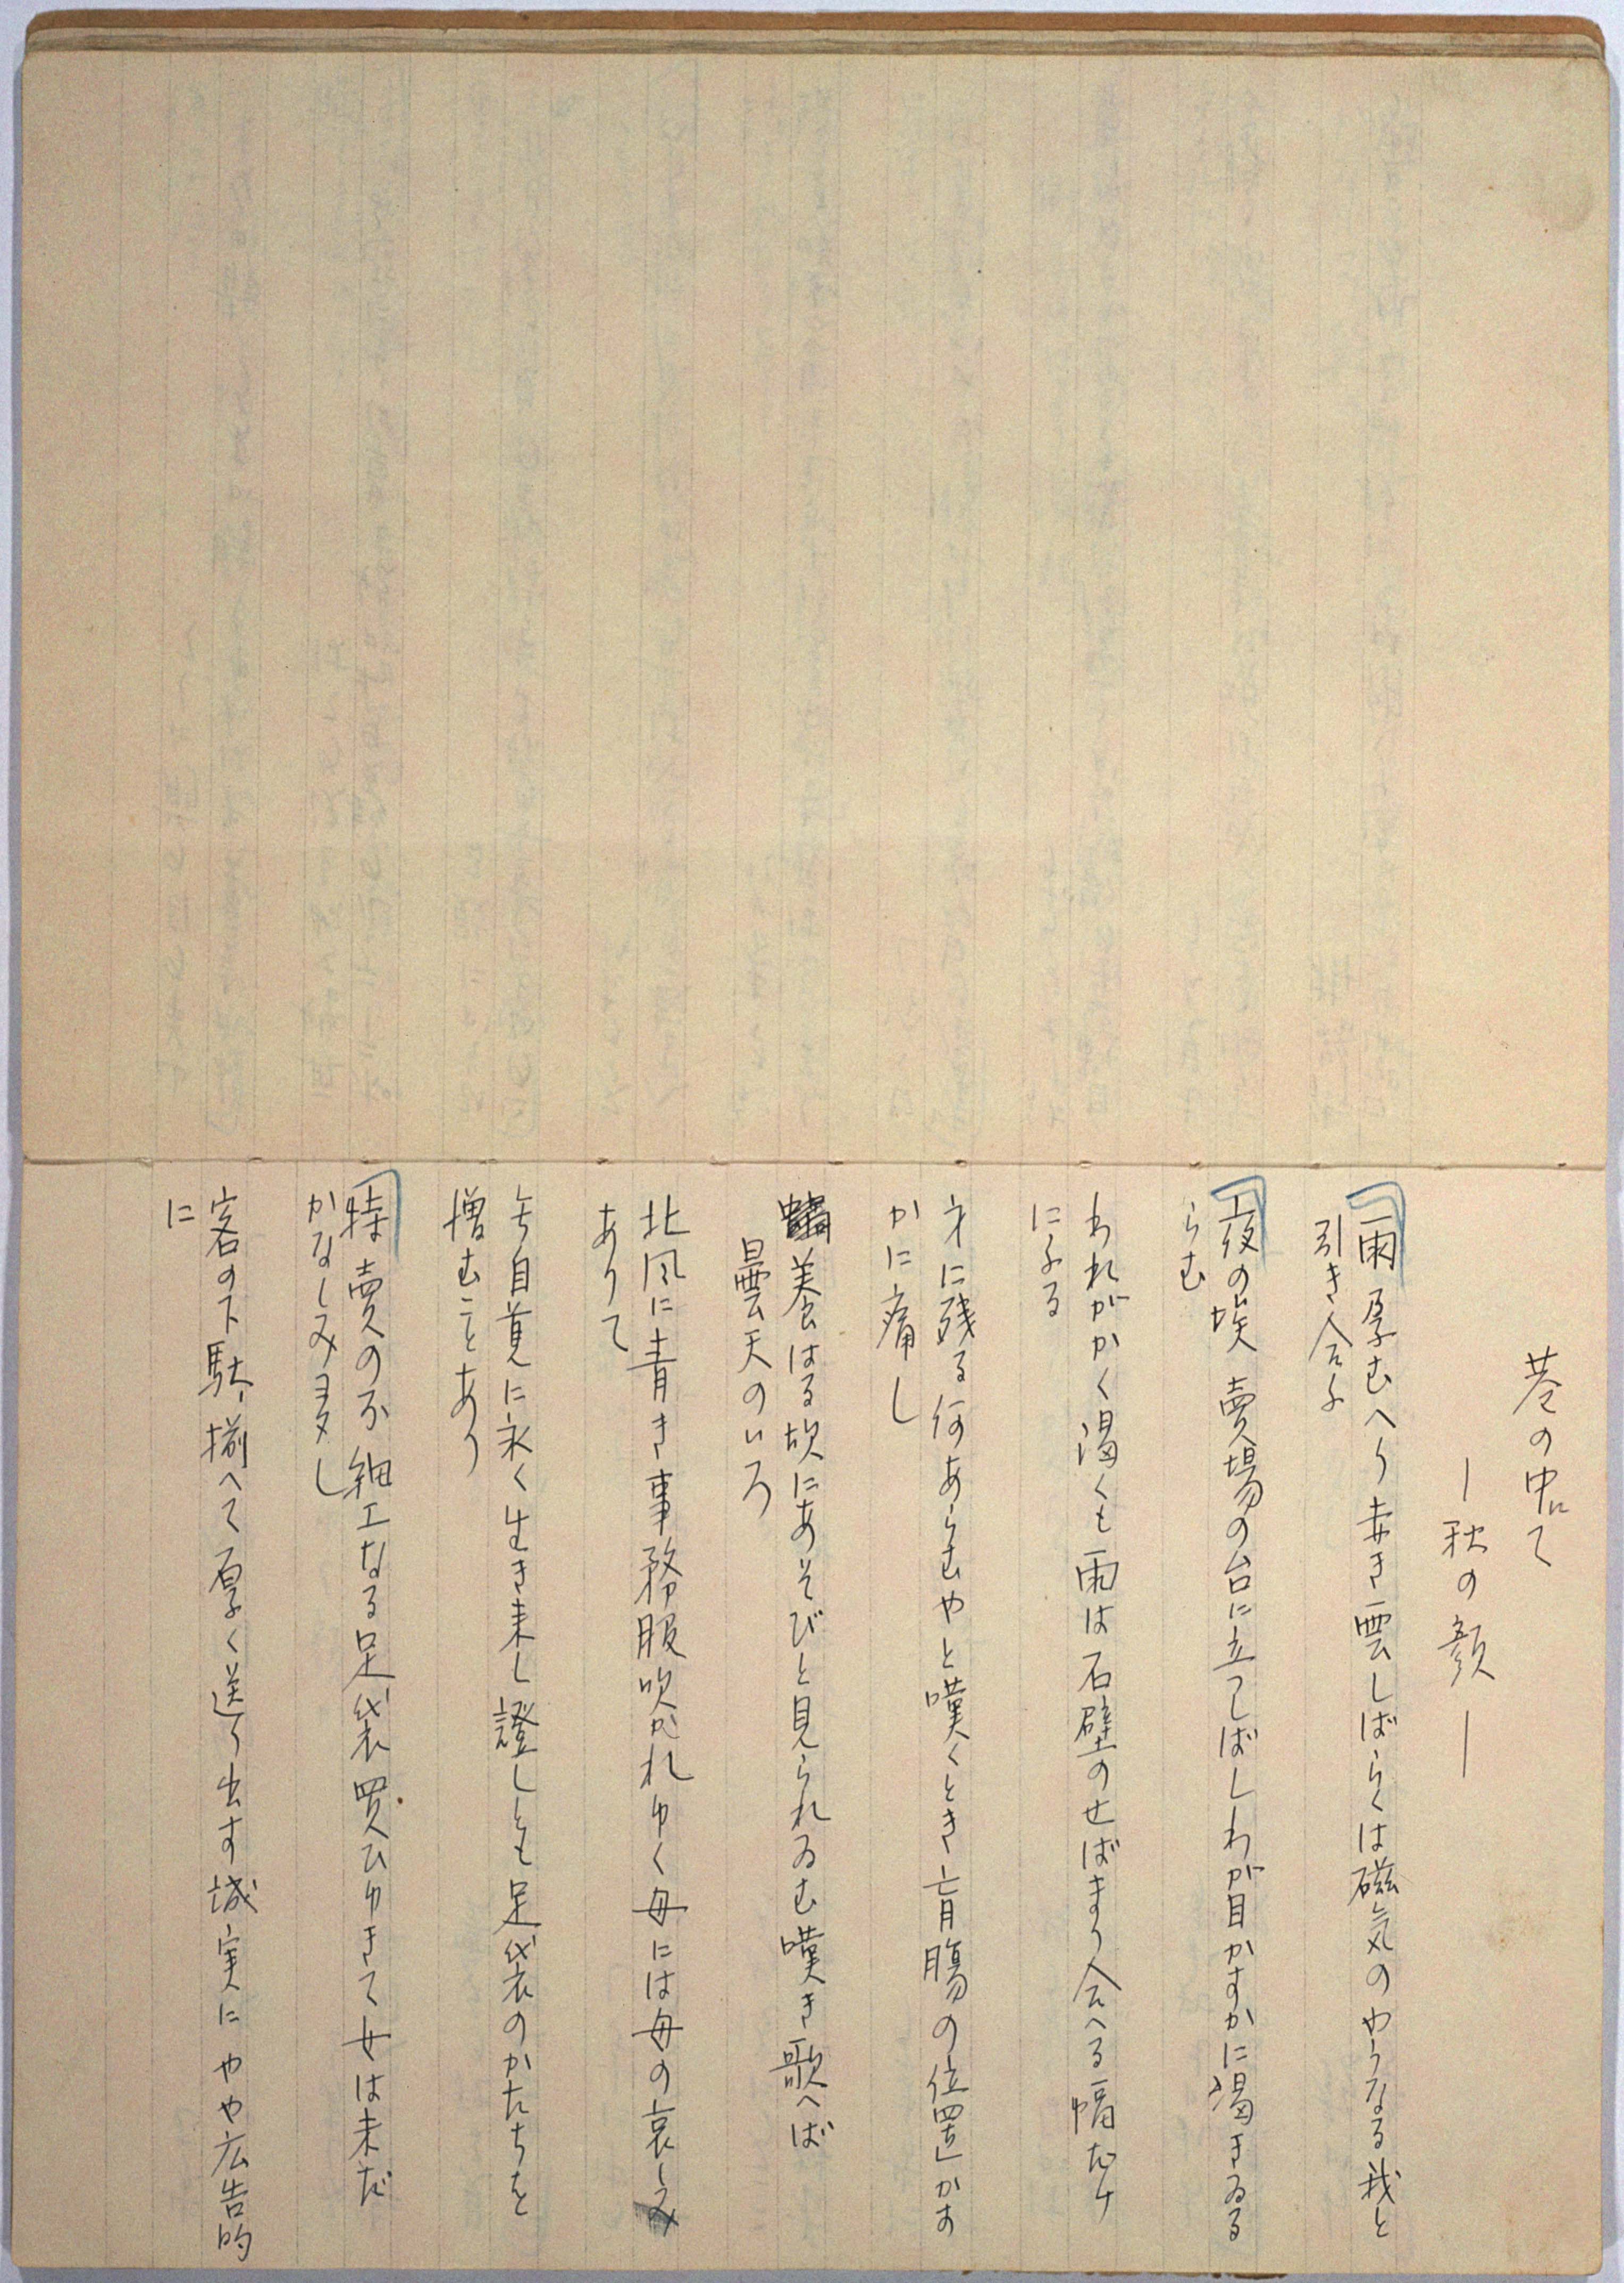 巷の中にて
―秋の顔―
雨孕むへり赤き雲しばらくは磁気のやうなる我と
引き合ふ
夜の埃賣場の台に立つしばしわが目かすかに渇きゐる
らむ
われがかく渇くも雨は石壁のせばまり合へる幅だけ
にふる
才に残る何あらむやと嘆くとき盲腸の位置かす
かに痛し
養はる切にあそびと見られゐむ嘆き歌へば
曇天のいろ
北風に青き事務服吹かれゆく母には母の哀しみ
ありて
自覚に永く生き来し證しとも足袋のかたちを
憎むことあり
特賣の不細工なる足袋買ひゆきて女は未だ
かなしみ多し
客の下駄揃へて厚く送り出す誠実にやや広告的
に